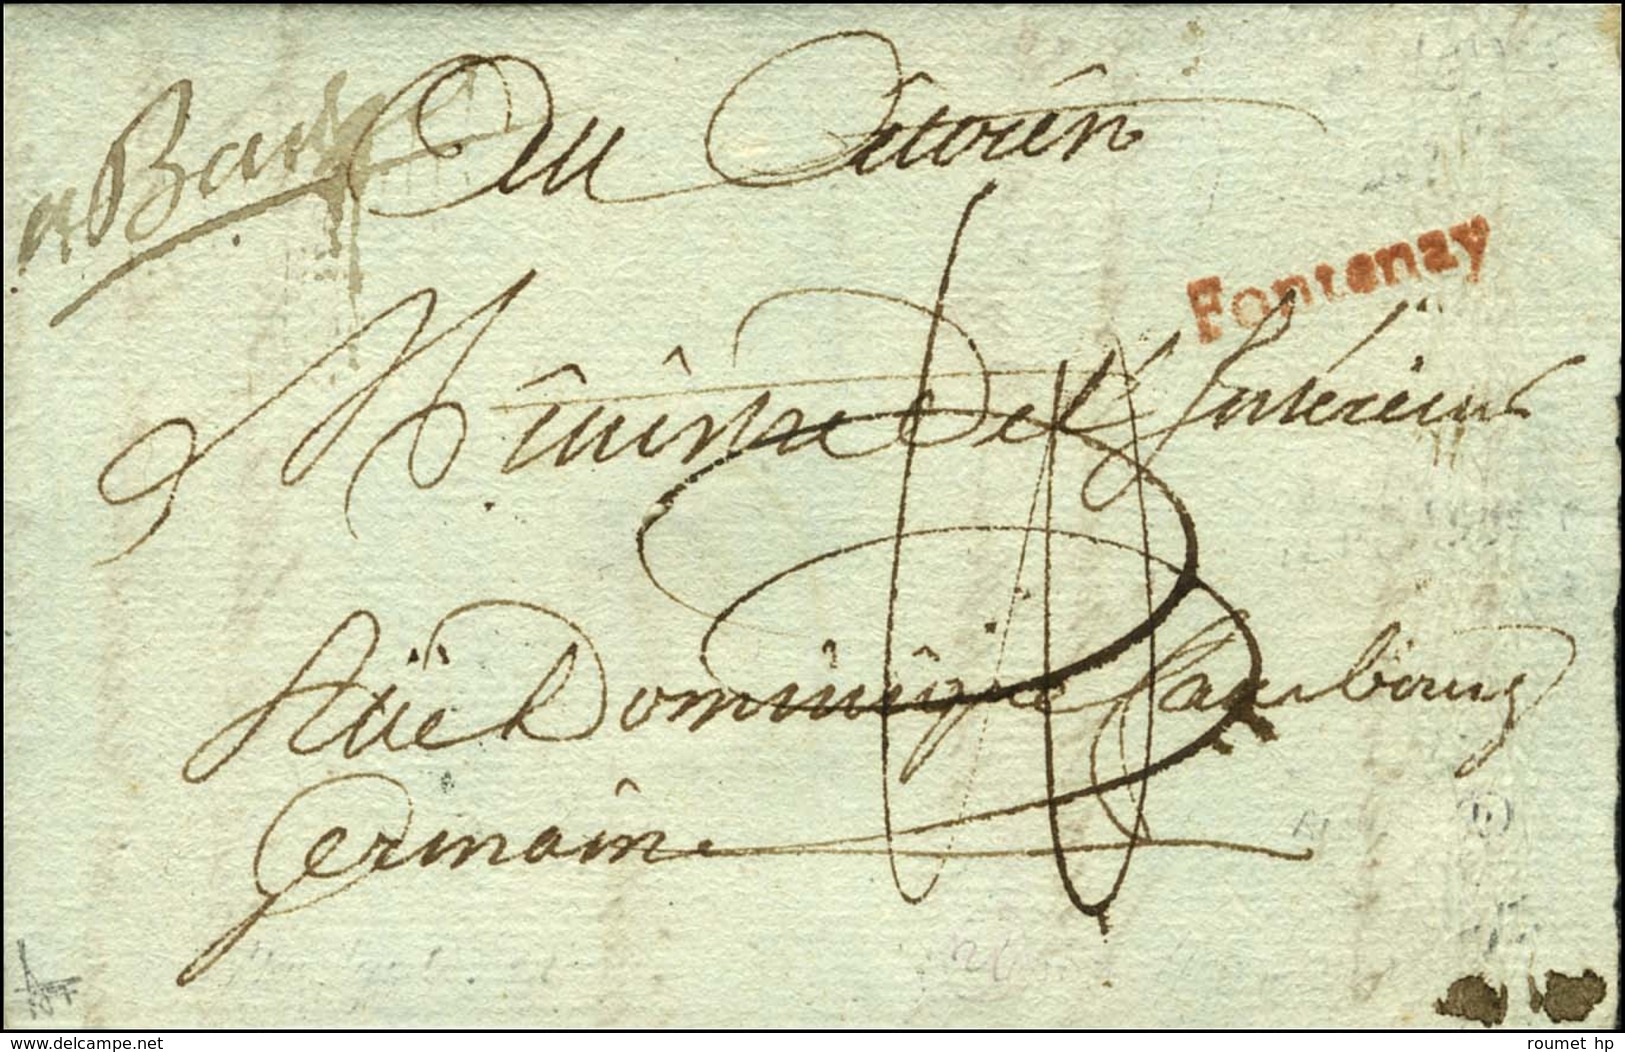 Au Citoïen
Fontenay
Ministre de l'Interieur
Rüe Dominique faubourg
germain
www.delcampe.net
roumet hp